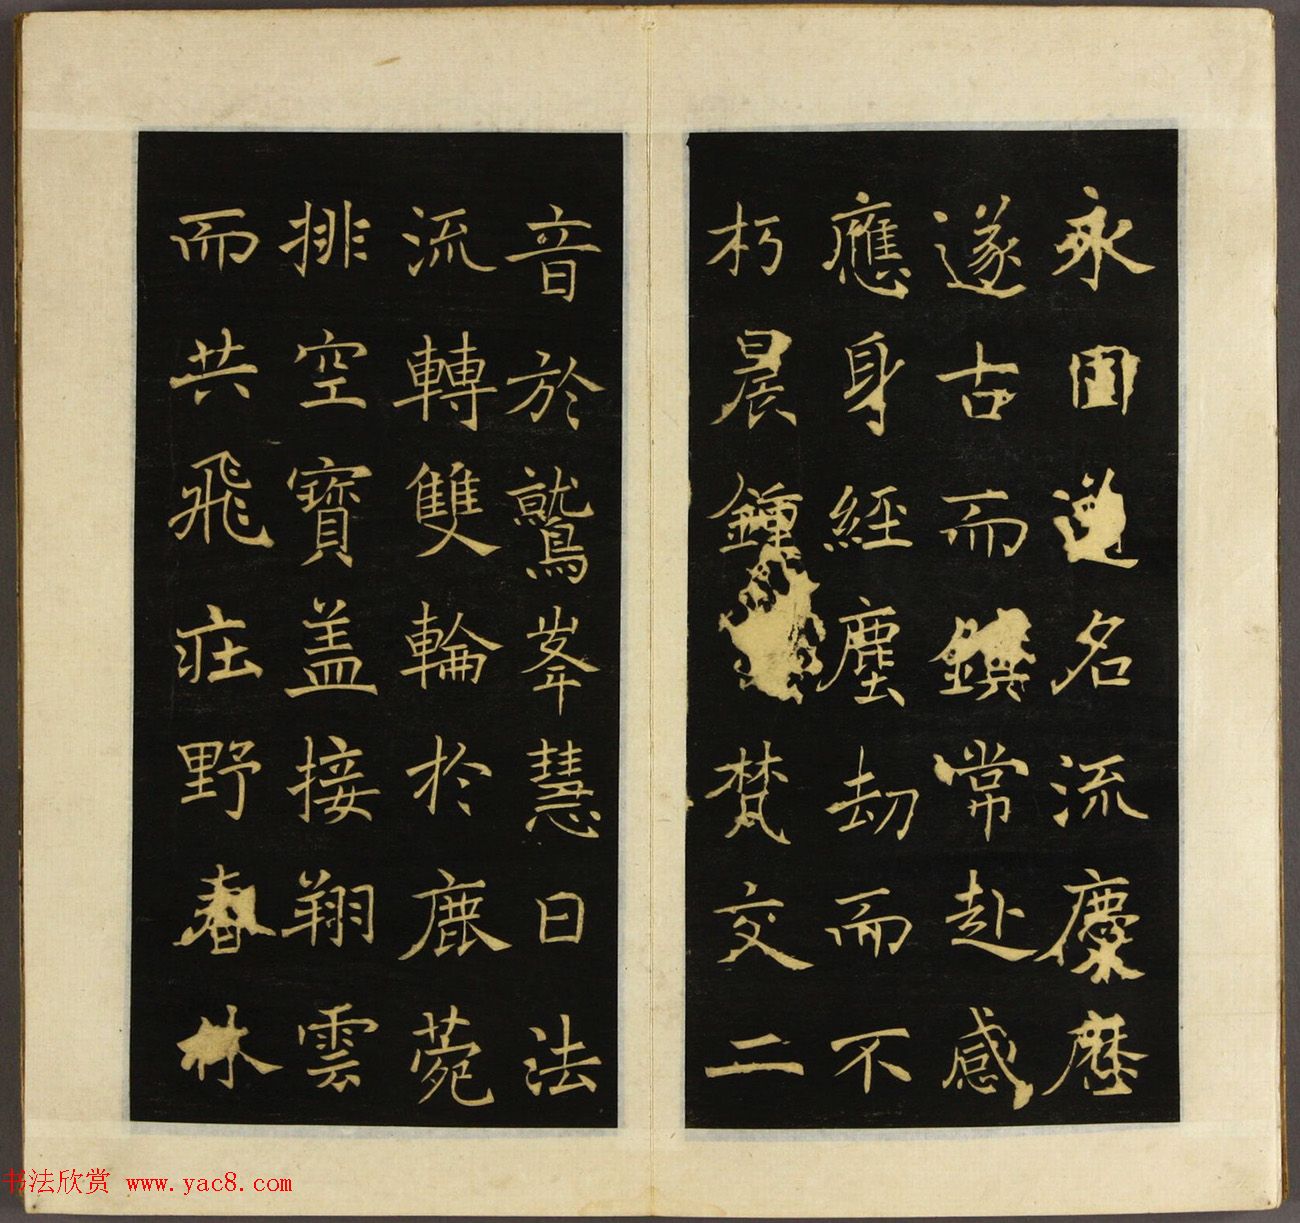 永固逆名流麋歷
遂古而鎮常赴感
應身經塵劫而不
朽晨鍾梵交二
音於鷲峯慧日法
流轉雙輪於鹿菀
排空寶盖接翔雲
而共飛庄野春林
书法欣赏 www.yac8.com